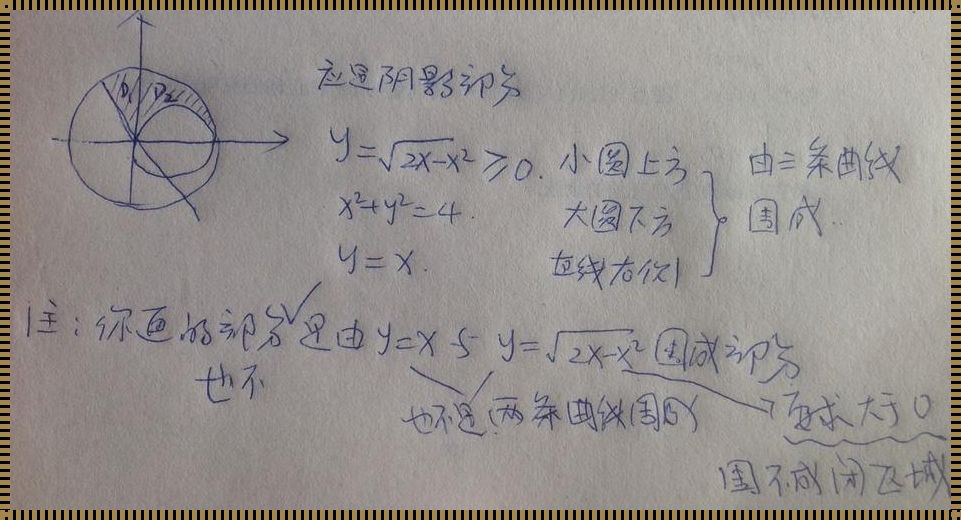 D₁ D₂
应是阴影部分
y=√(2x-x²) ≥0. 小圆上方
x²+y²=4. 大圆下方
y=x. 直线右侧
由三条曲线
围成..
注: 你画的部分是由y=x与 y=√(2x-x²) 围成部分
也不
也不是(两条曲线围成 要求大于0
围不成闭区域